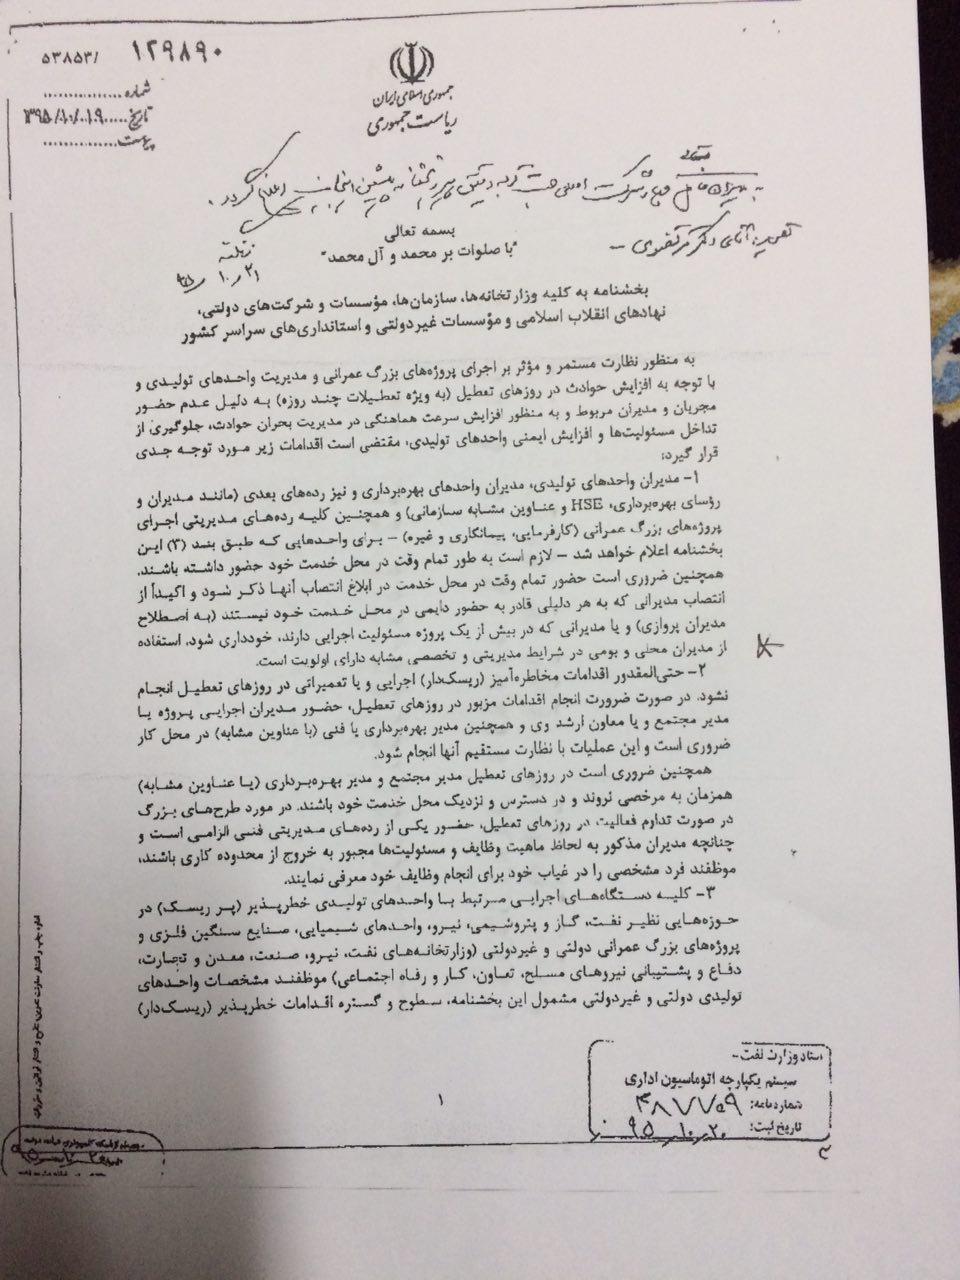 ۱۲۹۸۹۰ /۵۳۸۵۳
جمهوری اسلامی ایران
ریاست جمهوری
شماره
تاریخ ۱۳۹۵/۱۰/۰۱۹
پیوست
تصویر: آقای دکتر مرتضوی
بسمه تعالی
"با صلوات بر محمد و آل محمد"
بخشنامه به کلیه وزارتخانه‌ها، سازمان‌ها، مؤسسات و شرکت‌های دولتی،
نهادهای انقلاب اسلامی و مؤسسات غیردولتی و استانداری‌های سراسر کشور
به منظور نظارت مستمر و مؤثر بر اجرای پروژه‌های بزرگ عمرانی و مدیریت واحدهای تولیدی و
با توجه به افزایش حوادث در روزهای تعطیل (به ویژه تعطیلات چند روزه) به دلیل عدم حضور
مجریان و مدیران مربوط و به منظور افزایش سرعت هماهنگی در مدیریت بحران حوادث، جلوگیری از
تداخل مسئولیت‌ها و افزایش ایمنی واحدهای تولیدی، مقتضی است اقدامات زیر مورد توجه جدی
قرار گیرد:
۱- مدیران واحدهای تولیدی، مدیران واحدهای بهره‌برداری و نیز رده‌های بعدی (مانند مدیران و
رؤسای بهره‌برداری، HSE و عناوین مشابه سازمانی) و همچنین کلیه رده‌های مدیریتی اجرای
پروژه‌های بزرگ عمرانی (کارفرمایی، پیمانکاری و غیره) – برای واحدهایی که طبق بند (۳) این
بخشنامه اعلام خواهد شد – لازم است به طور تمام وقت در محل خدمت خود حضور داشته باشند.
همچنین ضروری است حضور تمام وقت در محل خدمت در ابلاغ انتصاب آنها ذکر شود و اکیداً از
انتصاب مدیرانی که به هر دلیلی قادر به حضور دایمی در محل خدمت خود نیستند (به اصطلاح
مدیران پروازی) و یا مدیرانی که در بیش از یک پروژه مسئولیت اجرایی دارند، خودداری شود. استفاده
از مدیران محلی و بومی در شرایط مدیریتی و تخصصی مشابه دارای اولویت است.
۲- حتی‌المقدور اقدامات مخاطره‌آمیز (ریسک‌دار) اجرایی و یا تعمیراتی در روزهای تعطیل انجام
نشود. در صورت ضرورت انجام اقدامات مزبور در روزهای تعطیل، حضور مدیران اجرایی پروژه یا
مدیر مجتمع و یا معاون ارشد وی و همچنین مدیر بهره‌برداری یا فنی (با عناوین مشابه) در محل کار
ضروری است و این عملیات با نظارت مستقیم آنها انجام شود.
همچنین ضروری است در روزهای تعطیل مدیر مجتمع و مدیر بهره‌برداری (یا عناوین مشابه)
همزمان به مرخصی نروند و در دسترس و نزدیک محل خدمت خود باشند. در مورد طرح‌های بزرگ
در صورت تداوم فعالیت در روزهای تعطیل، حضور یکی از رده‌های مدیریتی فنی الزامی است و
چنانچه مدیران مذکور به لحاظ ماهیت وظایف و مسئولیت‌ها مجبور به خروج از محدوده کاری باشند،
موظفند فرد مشخصی را در غیاب خود برای انجام وظایف خود معرفی نمایند.
۳- کلیه دستگاه‌های اجرایی مرتبط با واحدهای تولیدی خطرپذیر (پر ریسک) در
حوزه‌هایی نظیر نفت، گاز و پتروشیمی، نیرو، واحدهای شیمیایی، صنایع سنگین فلزی و
پروژه‌های بزرگ عمرانی دولتی و غیردولتی (وزارتخانه‌های نفت، نیرو، صنعت، معدن و تجارت،
دفاع و پشتیبانی نیروهای مسلح، تعاون، کار و رفاه اجتماعی) موظفند مشخصات واحدهای
تولیدی دولتی و غیردولتی مشمول این بخشنامه، سطوح و گستره اقدامات خطرپذیر (ریسک‌دار)
ستاد وزارت نفت-
سیستم یکپارچه اتوماسیون اداری
شماره نامه: ۳۸۷۷۵۹
تاریخ ثبت: ۹۵/۱۰/۲۰
۱